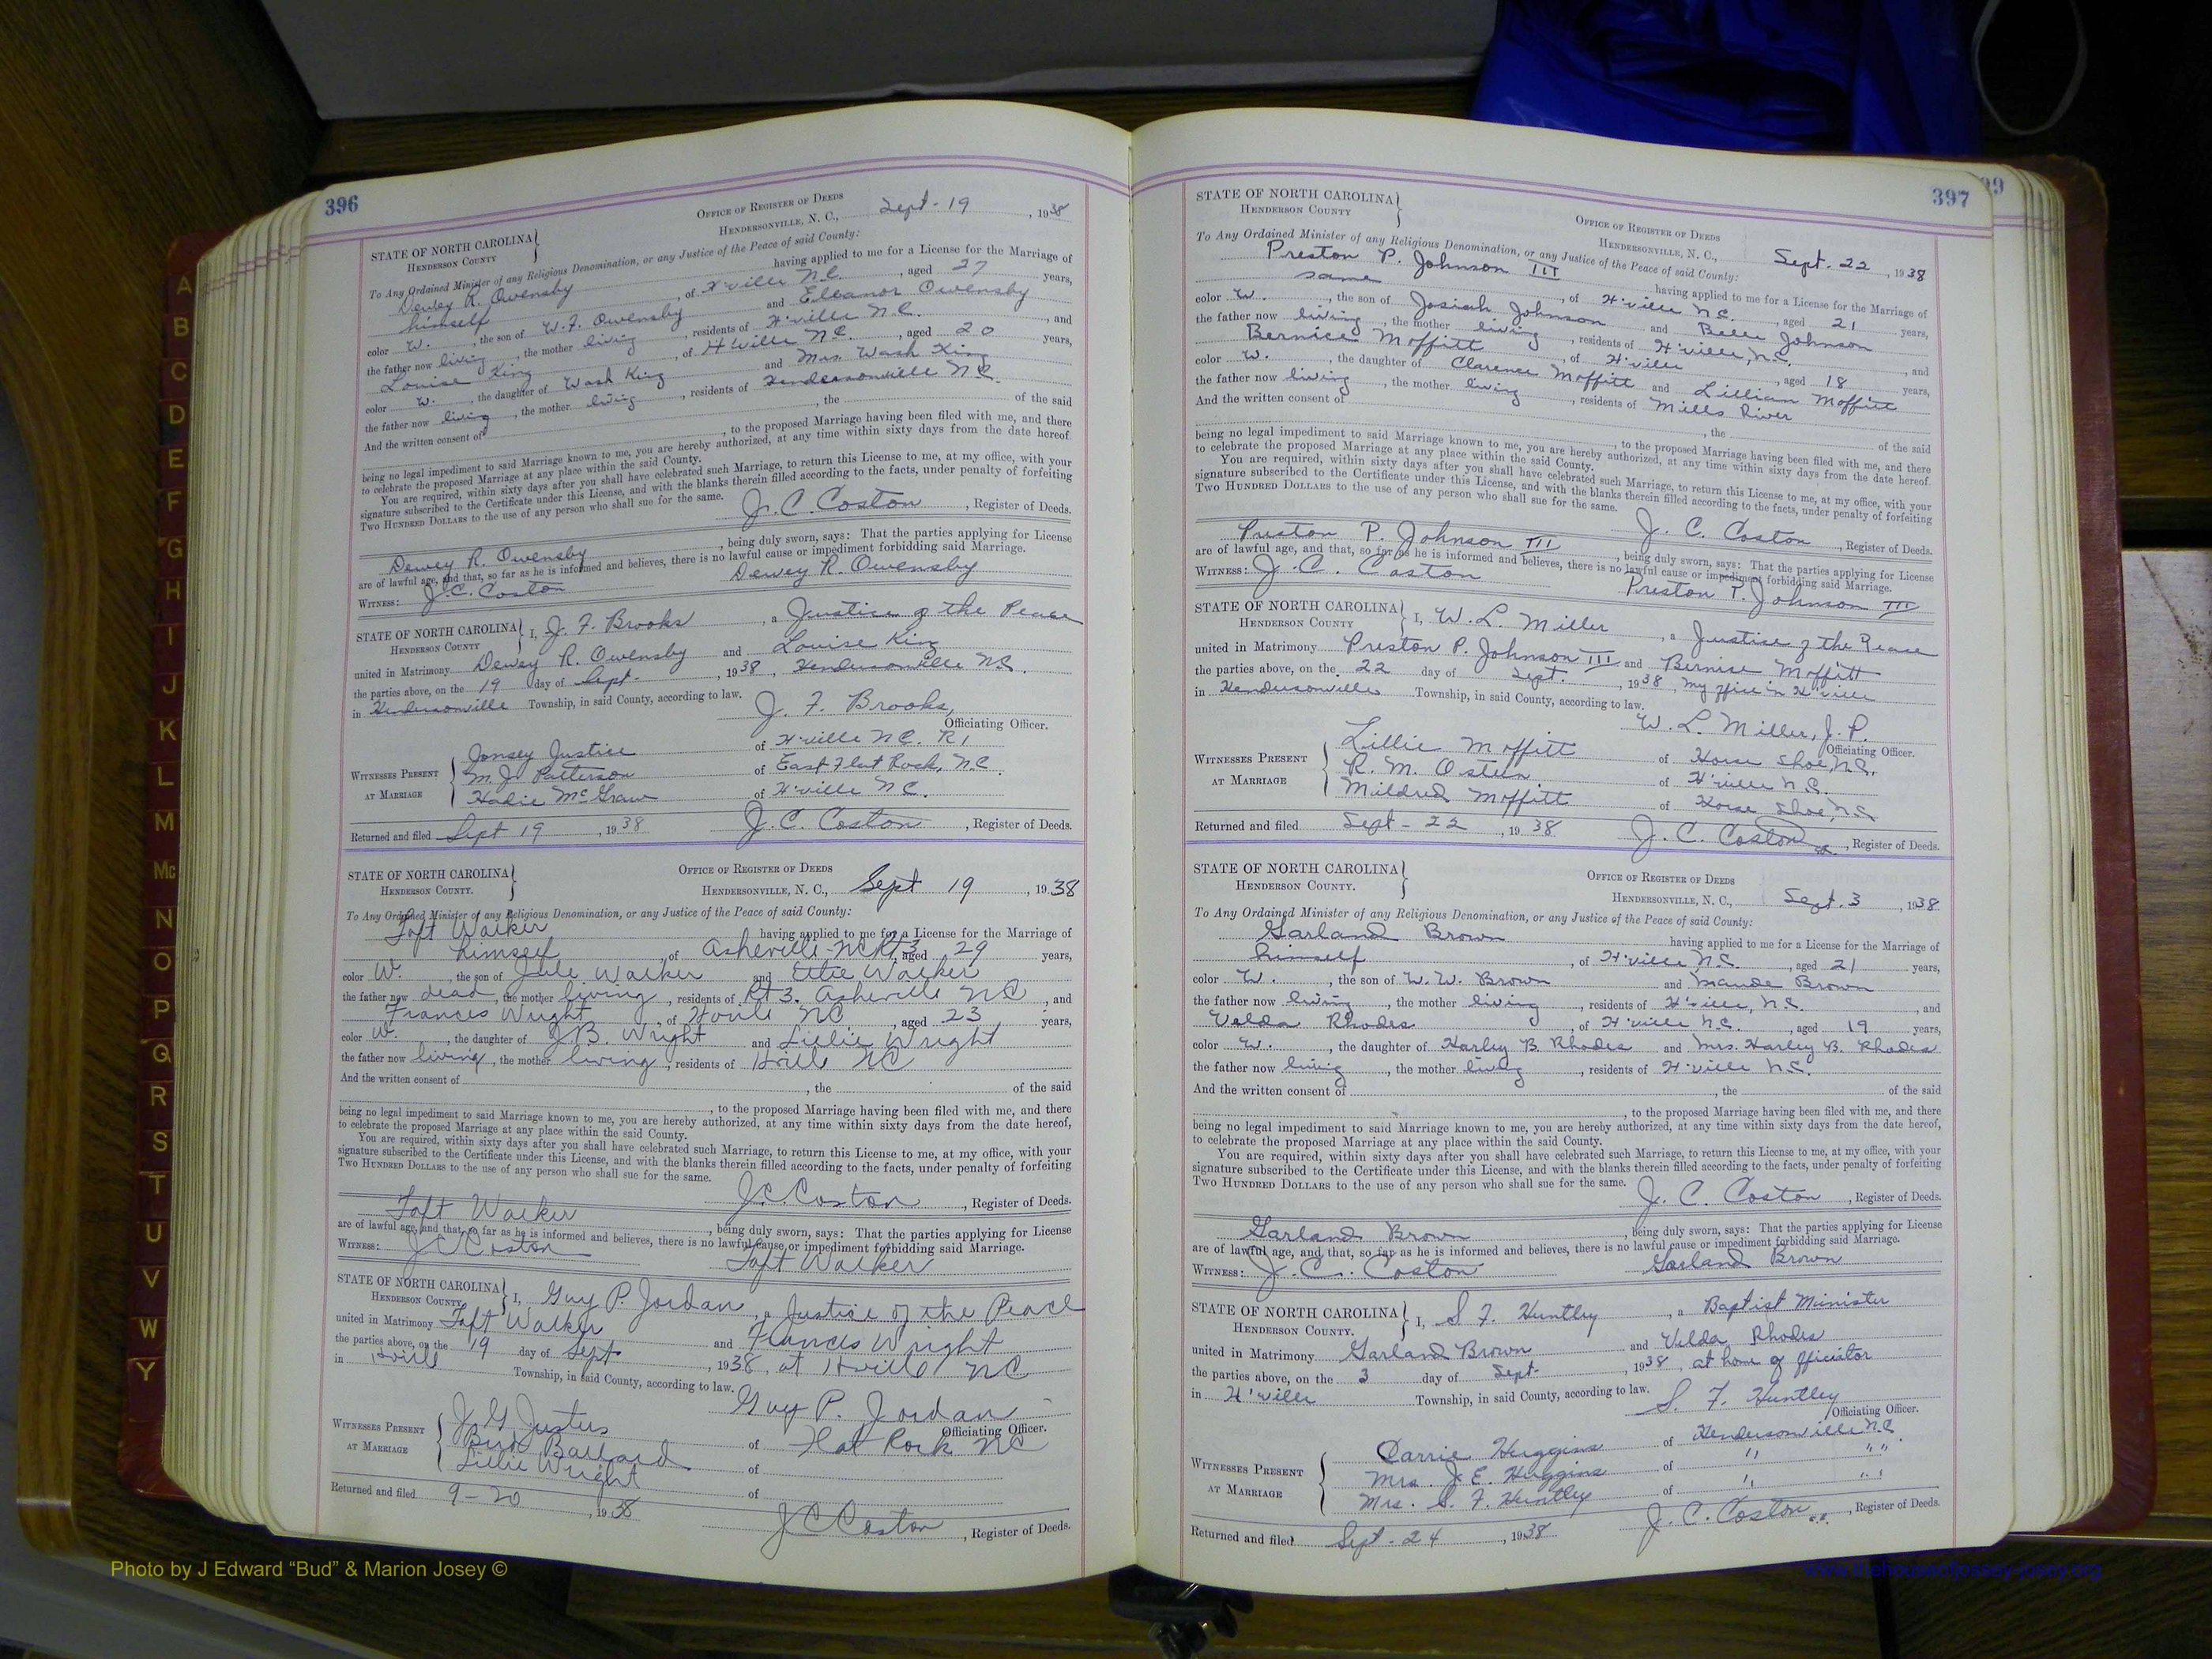 396
STATE OF NORTH CAROLINA
HENDERSON COUNTY
OFFICE OF REGISTER OF DEEDS
HENDERSONVILLE, N. C., Sept - 19, 1938
To Any Ordained Minister of any Religious Denomination, or any Justice of the Peace of said County:
Dewey R. Owensby having applied to me for a License for the Marriage of
himself, of H'ville N.C., aged 27 years,
color W., the son of W. F. Owensby and Elleanor Owensby
the father now living, the mother living, residents of H'ville N.C., and
Louise King, of H'ville N.C., aged 20 years,
color W., the daughter of Wash King and Mrs. Wash King
the father now living, the mother living, residents of Hendersonville N.C.
And the written consent of , the of the said
, to the proposed Marriage having been filed with me, and there
being no legal impediment to said Marriage known to me, you are hereby authorized, at any time within sixty days from the date hereof,
to celebrate the proposed Marriage at any place within the said County.
You are required, within sixty days after you shall have celebrated such Marriage, to return this License to me, at my office, with your
signature subscribed to the Certificate under this License, and with the blanks therein filled according to the facts, under penalty of forfeiting
TWO HUNDRED DOLLARS to the use of any person who shall sue for the same.
J. C. Coston, Register of Deeds.
Dewey R. Owensby, being duly sworn, says: That the parties applying for License
are of lawful age, and that, so far as he is informed and believes, there is no lawful cause or impediment forbidding said Marriage.
WITNESS: J. C. Coston Dewey R. Owensby
STATE OF NORTH CAROLINA
HENDERSON COUNTY
I, J. F. Brooks, a Justice of the Peace
united in Matrimony Dewey R. Owensby and Louise King
the parties above, on the 19 day of Sept-, 1938, Hendersonville N.C.
in Hendersonville Township, in said County, according to law.
J. F. Brooks,
Officiating Officer.
WITNESSES PRESENT
AT MARRIAGE
Jonsey Justice of H'ville N.C. R1
M. J. Patterson of East Flat Rock, N.C.
Hadie McGraw of H'ville N.C.
Returned and filed Sept 19, 1938 J. C. Coston, Register of Deeds.
STATE OF NORTH CAROLINA
HENDERSON COUNTY.
OFFICE OF REGISTER OF DEEDS
HENDERSONVILLE, N. C., Sept 19, 1938
To Any Ordained Minister of any Religious Denomination, or any Justice of the Peace of said County:
Taft Walker having applied to me for a License for the Marriage of
himself, of Asheville-NC Rt 3, aged 29 years,
color W., the son of Jule Walker and Ettie Walker
the father now dead, the mother living, residents of Rt 3. Asheville NC, and
Frances Wright, of Hville NC, aged 23 years,
color W., the daughter of J.B. Wright and Lillie Wright
the father now living, the mother living, residents of Hville NC
And the written consent of , the of the said
, to the proposed Marriage having been filed with me, and there
being no legal impediment to said Marriage known to me, you are hereby authorized, at any time within sixty days from the date hereof,
to celebrate the proposed Marriage at any place within the said County.
You are required, within sixty days after you shall have celebrated such Marriage, to return this License to me, at my office, with your
signature subscribed to the Certificate under this License, and with the blanks therein filled according to the facts, under penalty of forfeiting
TWO HUNDRED DOLLARS to the use of any person who shall sue for the same.
J.C. Coston, Register of Deeds.
Taft Walker, being duly sworn, says: That the parties applying for License
are of lawful age, and that, so far as he is informed and believes, there is no lawful cause or impediment forbidding said Marriage.
WITNESS: J C Coston Taft Walker
STATE OF NORTH CAROLINA
HENDERSON COUNTY.
I, Guy P. Jordan, a Justice of the Peace
united in Matrimony Taft Walker and Frances Wright
the parties above, on the 19 day of Sept, 1938, at Hville NC
in Hville Township, in said County, according to law.
Guy P. Jordan
Officiating Officer.
WITNESSES PRESENT
AT MARRIAGE
J G Justus of Flat Rock NC
Bird Ballard of
Lillie Wright of
Returned and filed 9-20, 1938 J C Coston, Register of Deeds.
397
99
STATE OF NORTH CAROLINA
HENDERSON COUNTY
OFFICE OF REGISTER OF DEEDS
HENDERSONVILLE, N. C., Sept. 22, 1938
To Any Ordained Minister of any Religious Denomination, or any Justice of the Peace of said County:
Preston P. Johnson III having applied to me for a License for the Marriage of
same, of H'ville N.C., aged 21 years,
color W., the son of Josiah Johnson and Belle Johnson
the father now living, the mother living, residents of H'ville, N.C., and
Bernice Moffitt, of H'ville, aged 18 years,
color W., the daughter of Clarence Moffitt and Lillian Moffitt
the father now living, the mother living, residents of Mills River
And the written consent of , the of the said
, to the proposed Marriage having been filed with me, and there
being no legal impediment to said Marriage known to me, you are hereby authorized, at any time within sixty days from the date hereof,
to celebrate the proposed Marriage at any place within the said County.
You are required, within sixty days after you shall have celebrated such Marriage, to return this License to me, at my office, with your
signature subscribed to the Certificate under this License, and with the blanks therein filled according to the facts, under penalty of forfeiting
TWO HUNDRED DOLLARS to the use of any person who shall sue for the same.
J. C. Coston, Register of Deeds.
Preston P. Johnson III, being duly sworn, says: That the parties applying for License
are of lawful age, and that, so far as he is informed and believes, there is no lawful cause or impediment forbidding said Marriage.
WITNESS: J. C. Coston Preston P. Johnson III
STATE OF NORTH CAROLINA
HENDERSON COUNTY
I, W. L. Miller, a Justice of the Peace
united in Matrimony Preston P. Johnson III and Bernise Moffitt
the parties above, on the 22 day of Sept., 1938, my office in H'ville
in Hendersonville Township, in said County, according to law.
W. L. Miller, J. P.
Officiating Officer.
WITNESSES PRESENT
AT MARRIAGE
Lillie Moffitt of Horse Shoe, N.C.
R. M. Osteen of H'ville N.C.
Mildred Moffitt of Horse Shoe, N.C.
Returned and filed Sept - 22, 1938 J. C. Coston, Register of Deeds.
STATE OF NORTH CAROLINA
HENDERSON COUNTY.
OFFICE OF REGISTER OF DEEDS
HENDERSONVILLE, N. C., Sept. 3, 1938
To Any Ordained Minister of any Religious Denomination, or any Justice of the Peace of said County:
Garland Brown having applied to me for a License for the Marriage of
himself, of H'ville, N.C., aged 21 years,
color W., the son of W. W. Brown and Maude Brown
the father now living, the mother living, residents of H'ville, N.C., and
Velda Rhodes, of H'ville N.C., aged 19 years,
color W., the daughter of Harley B. Rhodes and Mrs. Harley B. Rhodes
the father now living, the mother living, residents of H'ville N.C.
And the written consent of , the of the said
, to the proposed Marriage having been filed with me, and there
being no legal impediment to said Marriage known to me, you are hereby authorized, at any time within sixty days from the date hereof,
to celebrate the proposed Marriage at any place within the said County.
You are required, within sixty days after you shall have celebrated such Marriage, to return this License to me, at my office, with your
signature subscribed to the Certificate under this License, and with the blanks therein filled according to the facts, under penalty of forfeiting
TWO HUNDRED DOLLARS to the use of any person who shall sue for the same.
J. C. Coston, Register of Deeds.
Garland Brown, being duly sworn, says: That the parties applying for License
are of lawful age, and that, so far as he is informed and believes, there is no lawful cause or impediment forbidding said Marriage.
WITNESS: J. C. Coston Garland Brown
STATE OF NORTH CAROLINA
HENDERSON COUNTY.
I, S F. Huntley, a Baptist Minister
united in Matrimony Garland Brown and Velda Rhodes
the parties above, on the 3 day of Sept-, 1938, at home of officiator
in H'ville Township, in said County, according to law.
S. F. Huntley
Officiating Officer.
WITNESSES PRESENT
AT MARRIAGE
Carrie Huggins of Hendersonville N.C.
Mrs. J. E. Huggins of " " "
Mrs. S. F. Huntley of " " "
Returned and filed Sept - 24, 1938 J. C. Coston, Register of Deeds.
A
B
C
D
E
F
G
H
I
J
K
L
M
Mc
N
O
P
Q
R
S
T
U
V
W
Y
Photo by J Edward “Bud” & Marion Josey ©
www.thehouseofjossey-josey.org